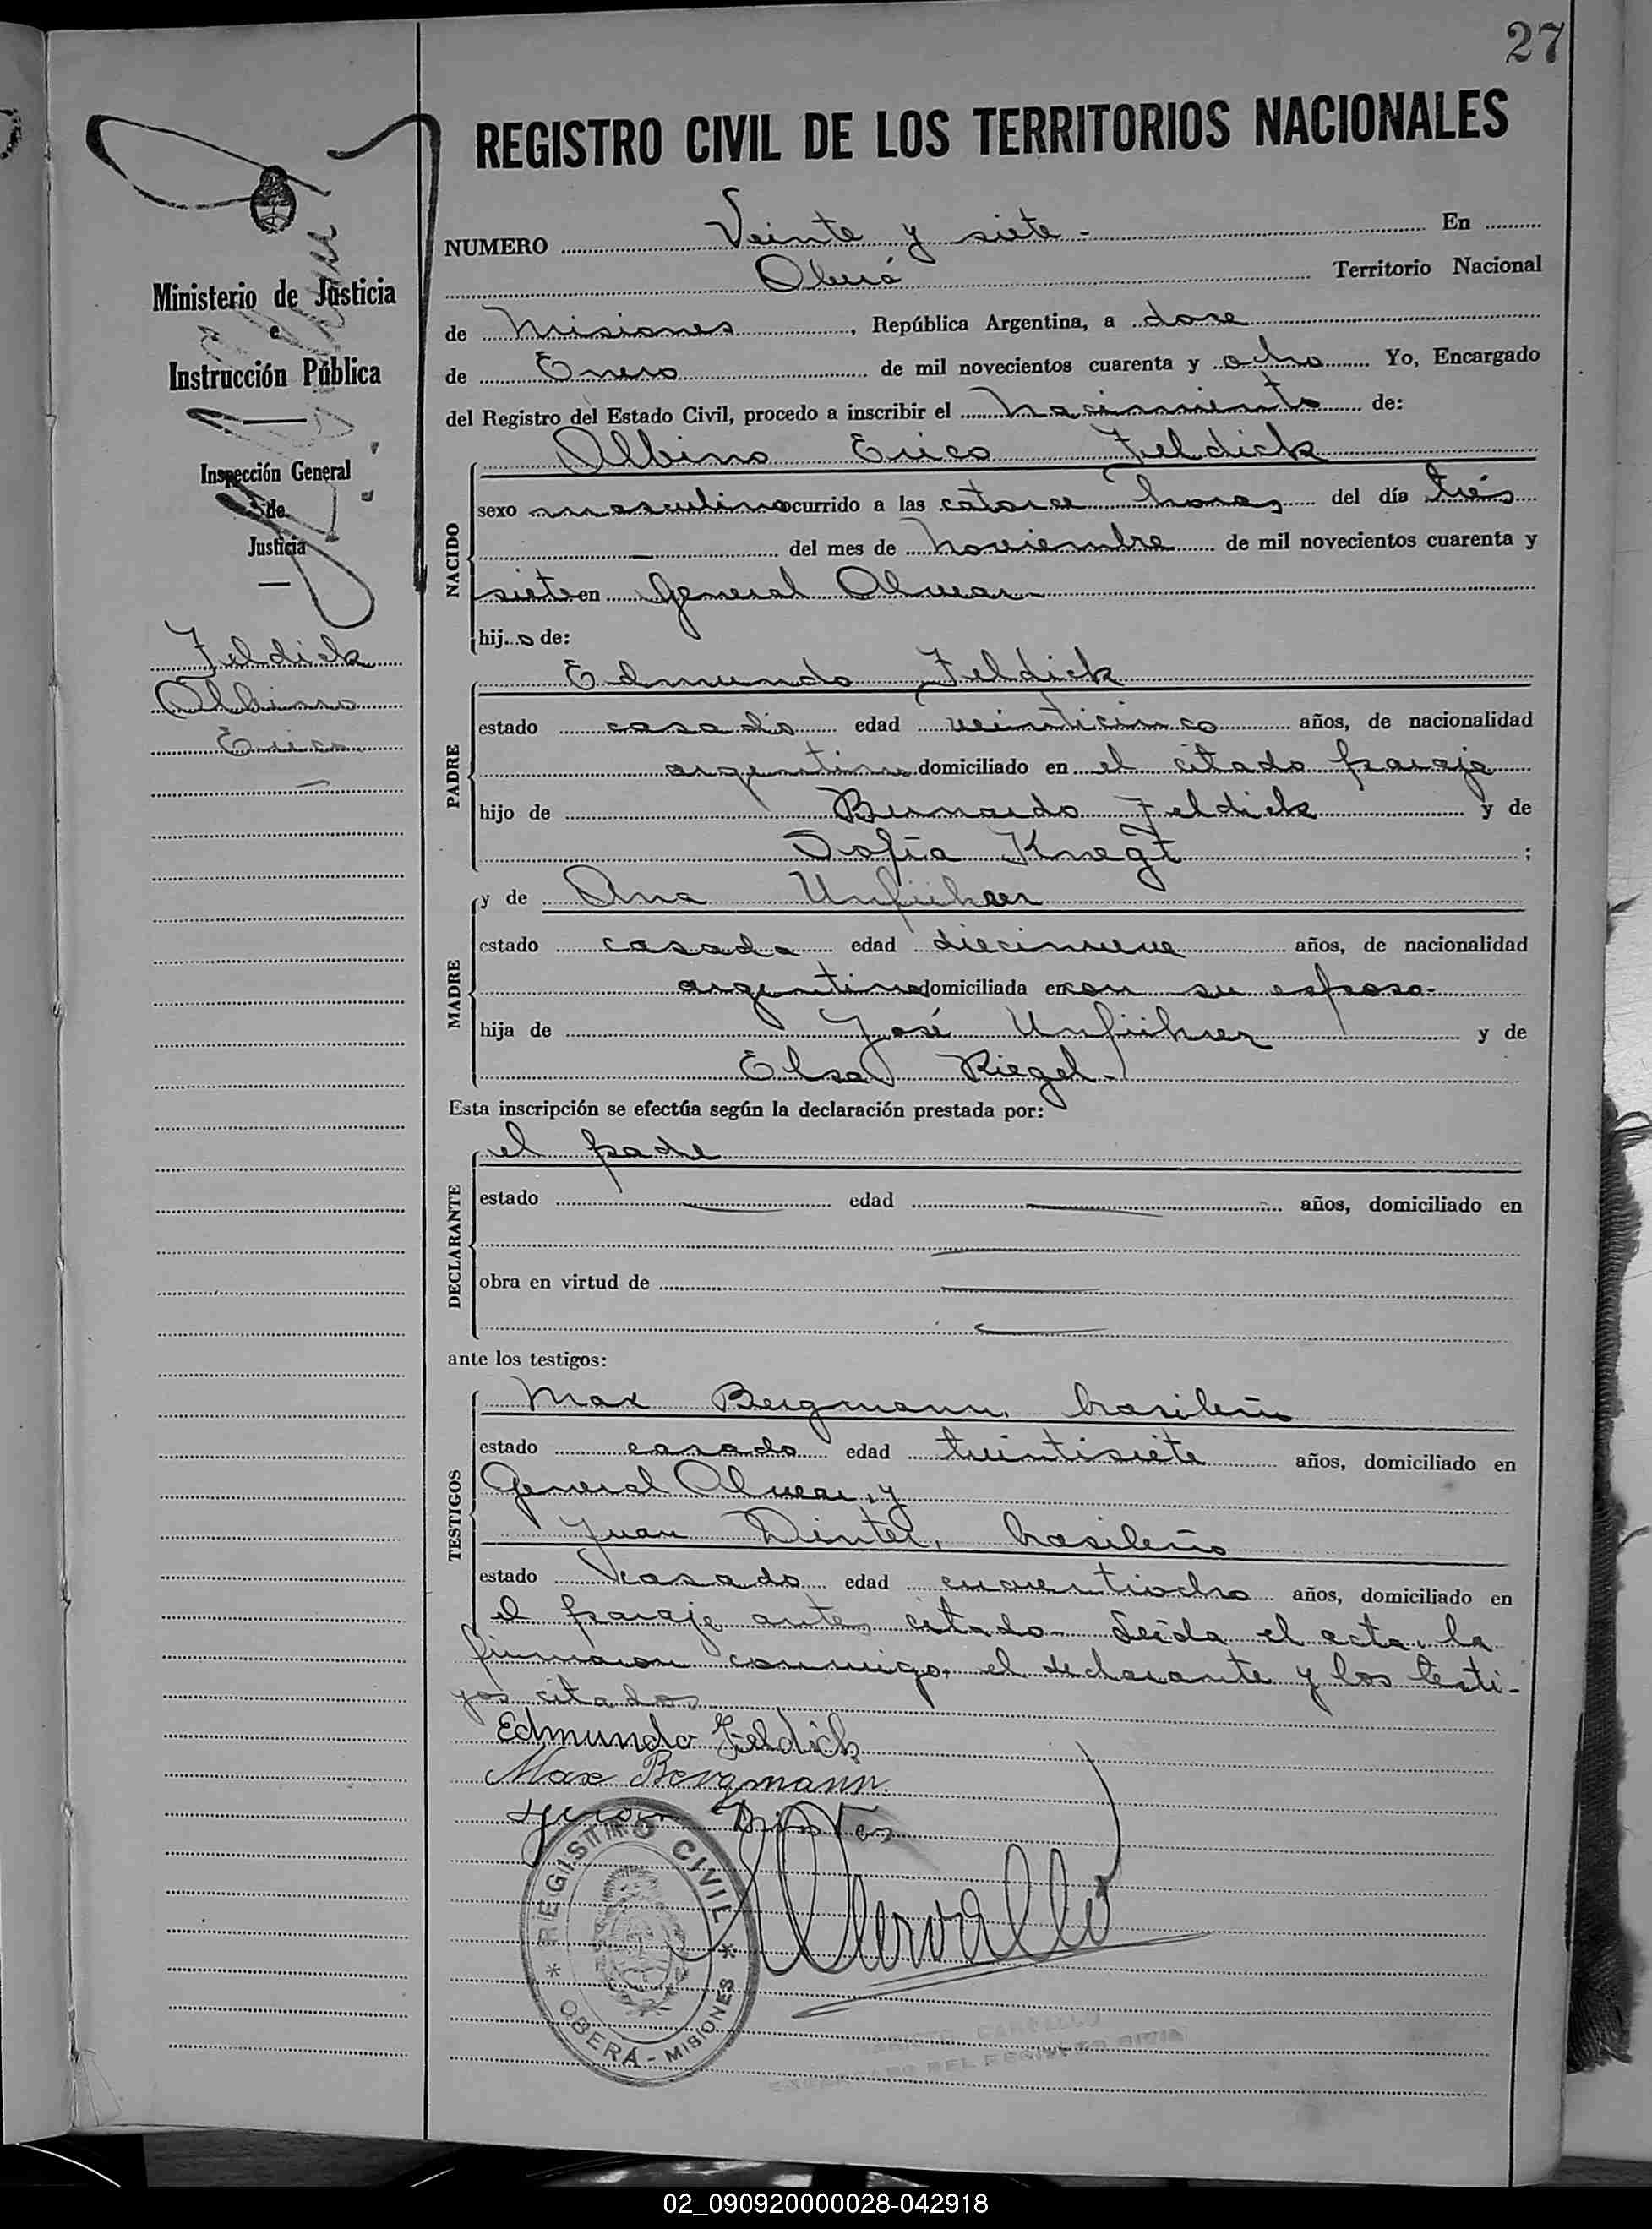 27
REGISTRO CIVIL DE LOS TERRITORIOS NACIONALES
NUMERO Veinte y siete - En
Oberá Territorio Nacional
de Misiones, República Argentina, a doce
de Enero de mil novecientos cuarenta y ocho Yo, Encargado
del Registro del Estado Civil, procedo a inscribir el nacimiento de:
Ministerio de Justicia
e
Instrucción Pública
Inspección General
de
Justicia
Feldick
Albino
Erico
NACIDO
Albino Erico Feldick
sexo masculino ocurrido a las catorce horas del día tres
del mes de Noviembre de mil novecientos cuarenta y
siete en General Alvear
hijo de:
PADRE
Edmundo Feldick
estado casado edad veinticinco años, de nacionalidad
argentina domiciliado en el citado paraje
hijo de Bernardo Feldick y de
Sofía Knegt ;
MADRE
y de Ana Unführer
estado casada edad diecinueve años, de nacionalidad
argentina domiciliada en con su esposo-
hija de José Unführer y de
Elsa Riegel.
Esta inscripción se efectúa según la declaración prestada por:
DECLARANTE
el padre
estado edad años, domiciliado en
obra en virtud de
ante los testigos:
TESTIGOS
Max Bergmann, brasileño
estado casado edad treintisiete años, domiciliado en
General Alvear, y
Juan Dintel, brasileño
estado casado edad cuarentiocho años, domiciliado en
el paraje antes citado- Leída el acta, la
firmaron conmigo, el declarante y los testi-
gos citados
Edmundo Feldick
Max Bergmann.
REGISTRO CIVIL
OBERÁ - MISIONES
CARVALLO
ENCARGADO DEL REGISTRO CIVIL
02_090920000028-042918